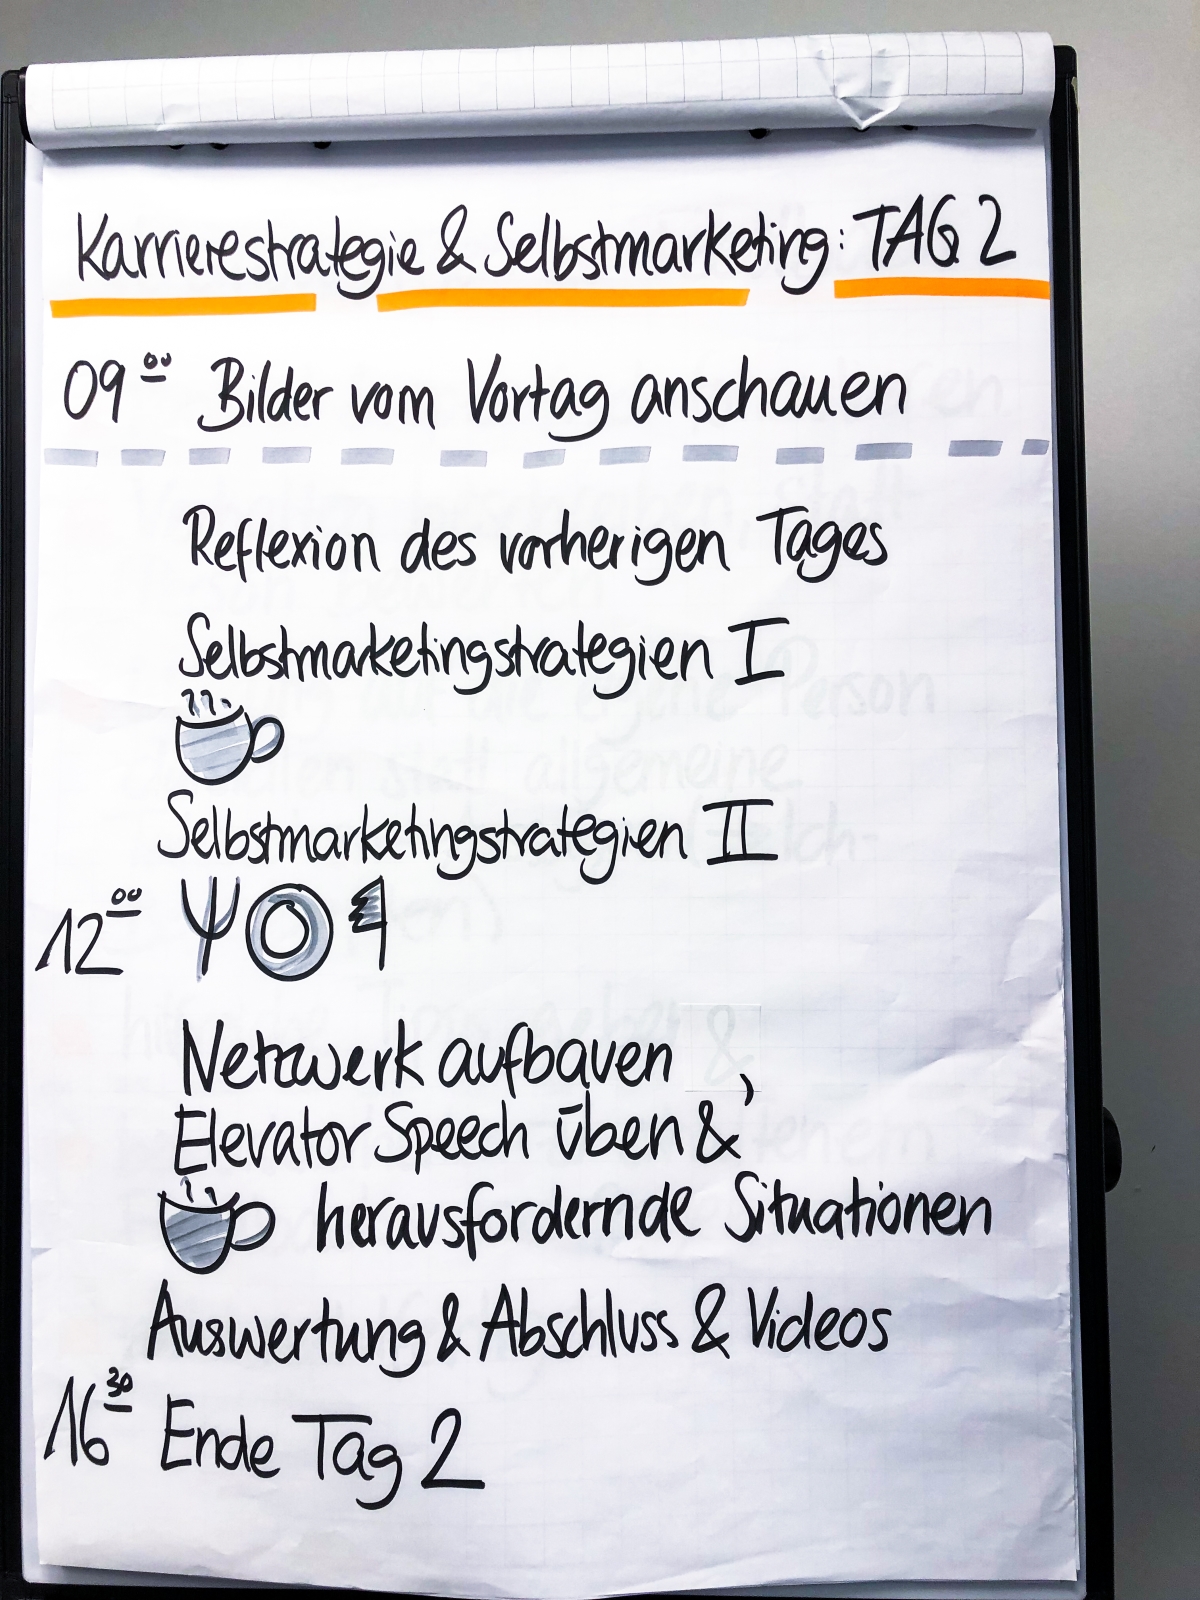 Karrierestrategie & Selbstmarketing: TAG 2
09⁰⁰ Bilder vom Vortag anschauen
Reflexion des vorherigen Tages
Selbstmarketingstrategien I
Selbstmarketingstrategien II
12⁰⁰
Netzwerk aufbauen ,
Elevator Speech üben &
herausfordernde Situationen
Auswertung & Abschluss & Videos
16³⁰ Ende Tag 2